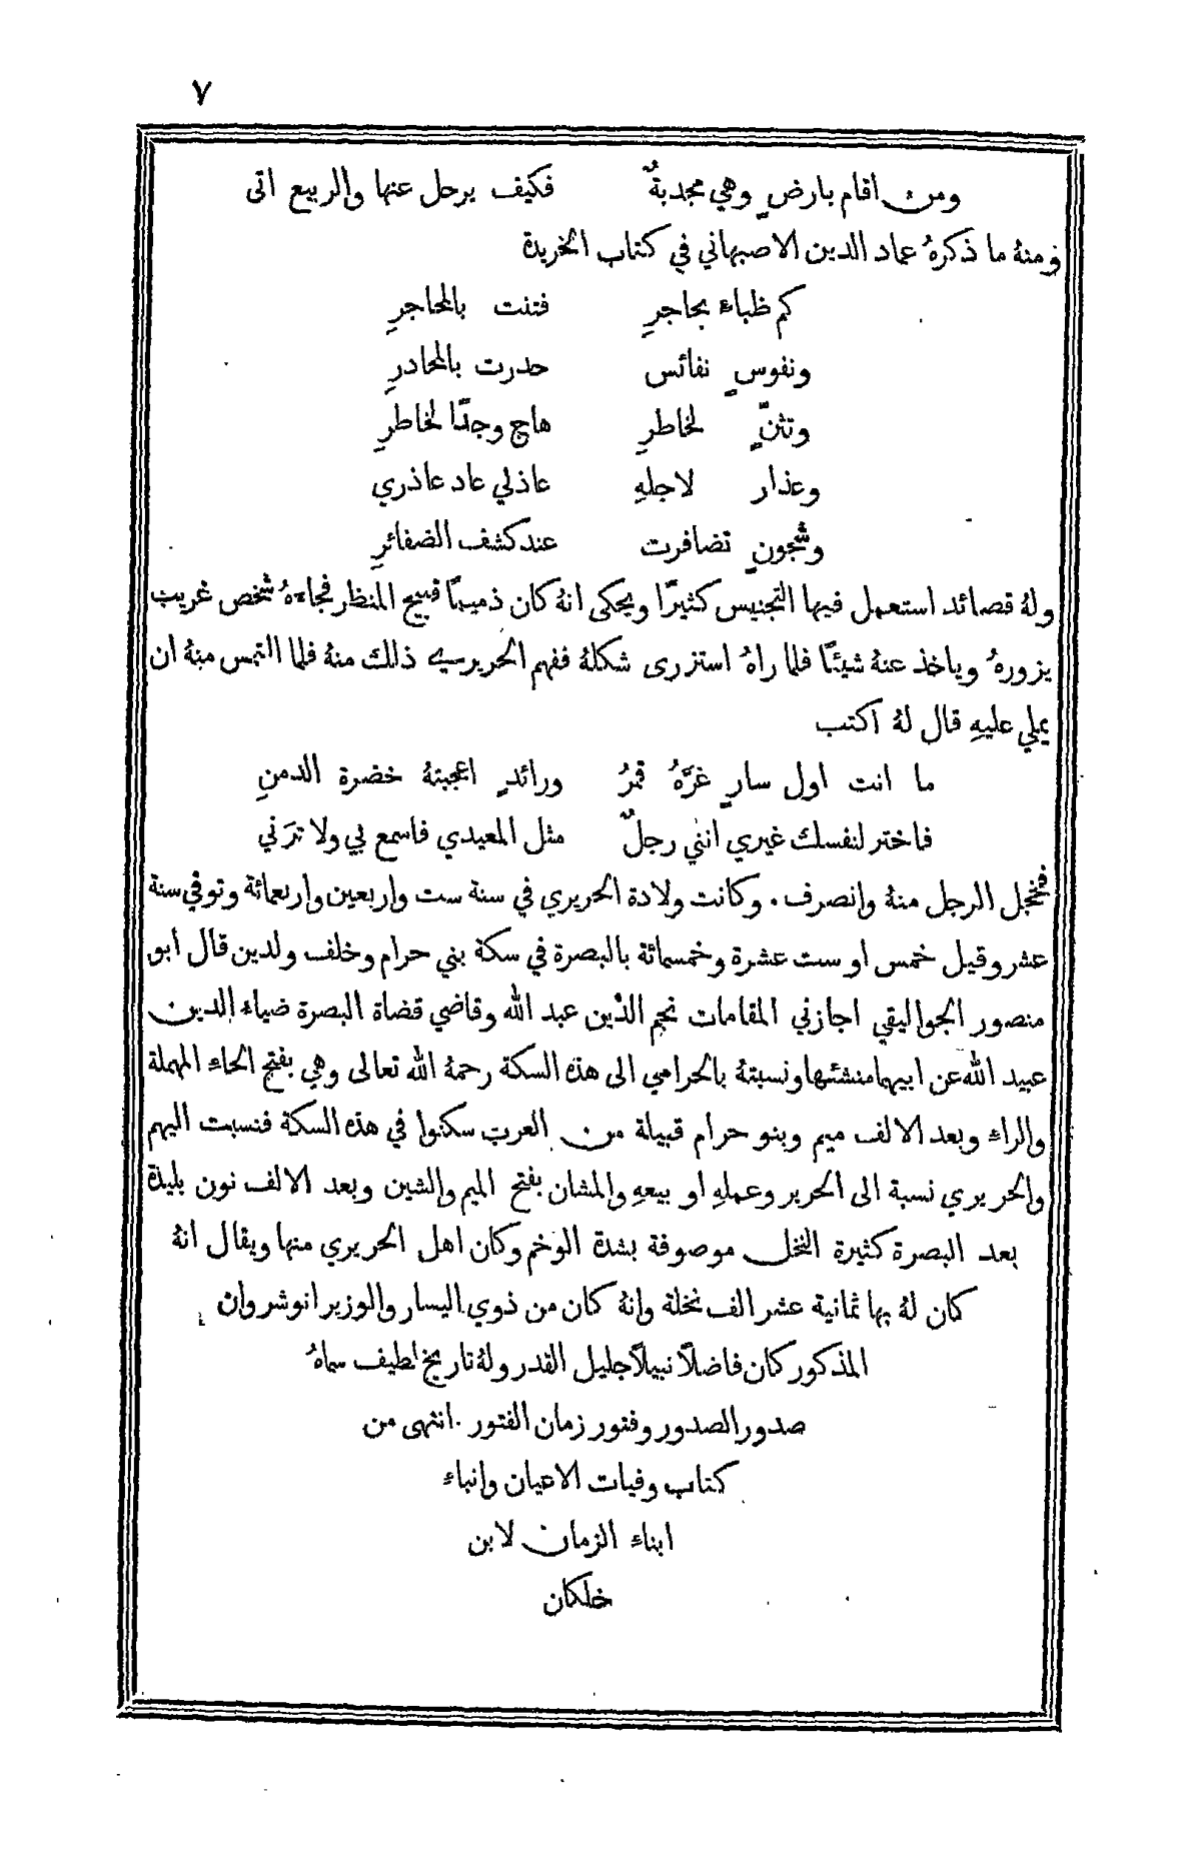 ٧
ومن اقام بارضٍ وهي مجدبةٌ فكيف يرحل عنها والربيع اتى
ومنهُ ما ذكرهُ عماد الدين الاصبهاني في كتاب الخريدة
كم ظباء بحاجرِ فتنت بالمحاجرِ
ونفوسٍ نفائس حدرت بالمحادرِ
وتثنٍّ لخاطرِ هاج وجدًا لخاطرِ
وعذار لاجلهِ عاذلي عاد عاذري
وشجونٍ تضافرت عند كشف الضفائرِ
ولهُ قصائد استعمل فيها التجنيس كثيرًا ويحكى انهُ كان ذميمًا قبيح المنظر فجاءهُ شخص غريب
يزورهُ وياخذ عنهُ شيئًا فلما راهُ استزرى شكلهُ ففهم الحريري ذلك منهُ فلما التمس منهُ ان
يملي عليهِ قال لهُ اكتب
ما انت اول سارٍ غرَّهُ قمرُ ورائدٍ اعجبتهُ خضرة الدمنِ
فاختر لنفسك غيري انني رجلٌ مثل المعيدي فاسمع بي ولا ترَني
فخجل الرجل منهُ وانصرف. وكانت ولادة الحريري في سنة ست واربعين واربعمائة وتوفي سنة
عشر وقيل خمس او ست عشرة وخمسمائة بالبصرة في سكة بني حرام وخلف ولدين قال ابو
منصور الجواليقي اجازني المقامات نجم الدين عبد الله وقاضي قضاة البصرة ضياء الدين
عبيد الله عن ابيهما منشئها ونسبتهُ بالحرامي الى هذه السكة رحمهُ الله تعالى وهي بفتح الحاء المهملة
والراء وبعد الالف ميم وبنو حرام قبيلة من العرب سكنوا في هذه السكة فنسبت اليهم
والحريري نسبة الى الحرير وعملهِ او بيعهِ والمشان بفتح الميم والشين وبعد الالف نون بليدة
بعد البصرة كثيرة النخل موصوفة بشدة الوخم وكان اهل الحريري منها ويقال انهُ
كان لهُ بها ثمانية عشر الف نخلة وانهُ كان من ذوي اليسار والوزير انوشروان
المذكور كان فاضلاً نبيلاً جليل القدر ولهُ تاريخ لطيف سماهُ
صدور الصدور وفتور زمان الفتور. انتهى من
كتاب وفيات الاعيان وانباء
ابناء الزمان لابن
خلكان